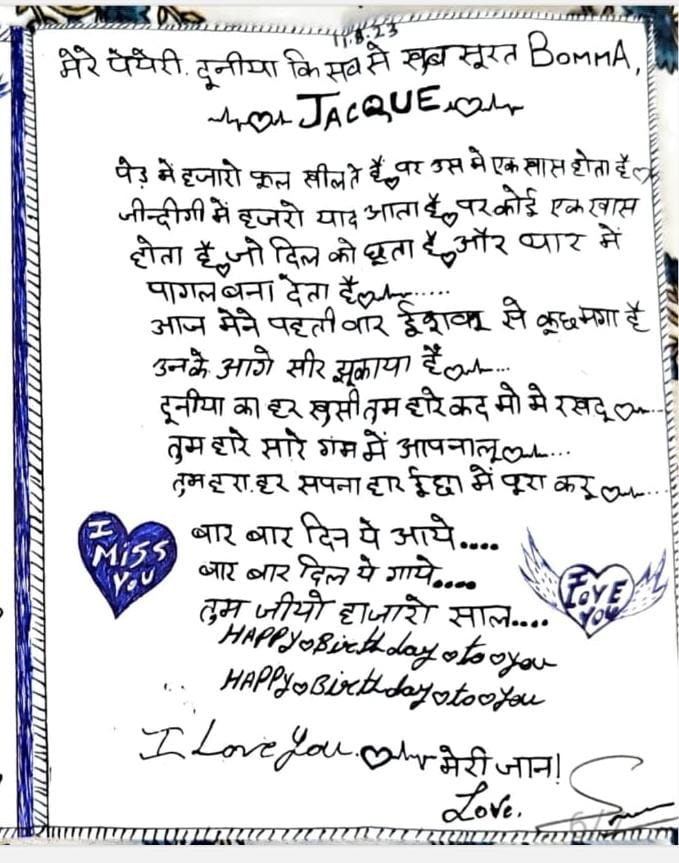 11.8.23
मेरे पेयेरी. दूनीया कि सब से खुब सूरत BOMMA,
JACQUE
पेड़ में हजारो फूल खीलते है, पर उस मे एक खास होता है
जीन्दीगी में हजरो याद आता है, पर कोई एक खास
होता है, जो दिल को छूता है, और प्यार में
पागल बना देता है......
आज मेने पहली बार ईशवर से कूछ मगा है
उनके आगे सीर झूकाया है...
दूनीया का हर खुसी तुम हारे कद मो मे रखदू...
तुम हारे सारे गम में आपनालू...
तुम हरा. हर सपना हार ईछा में पूरा करू...
I MISS YOU
बार बार दिन ये आये....
बार बार दिल ये गाये....
I LOVE YOU
तुम जीयो हाजारो साल....
HAPPY Birthday to you
HAPPY Birthday to you
I Love You. मेरी जान!
Love.